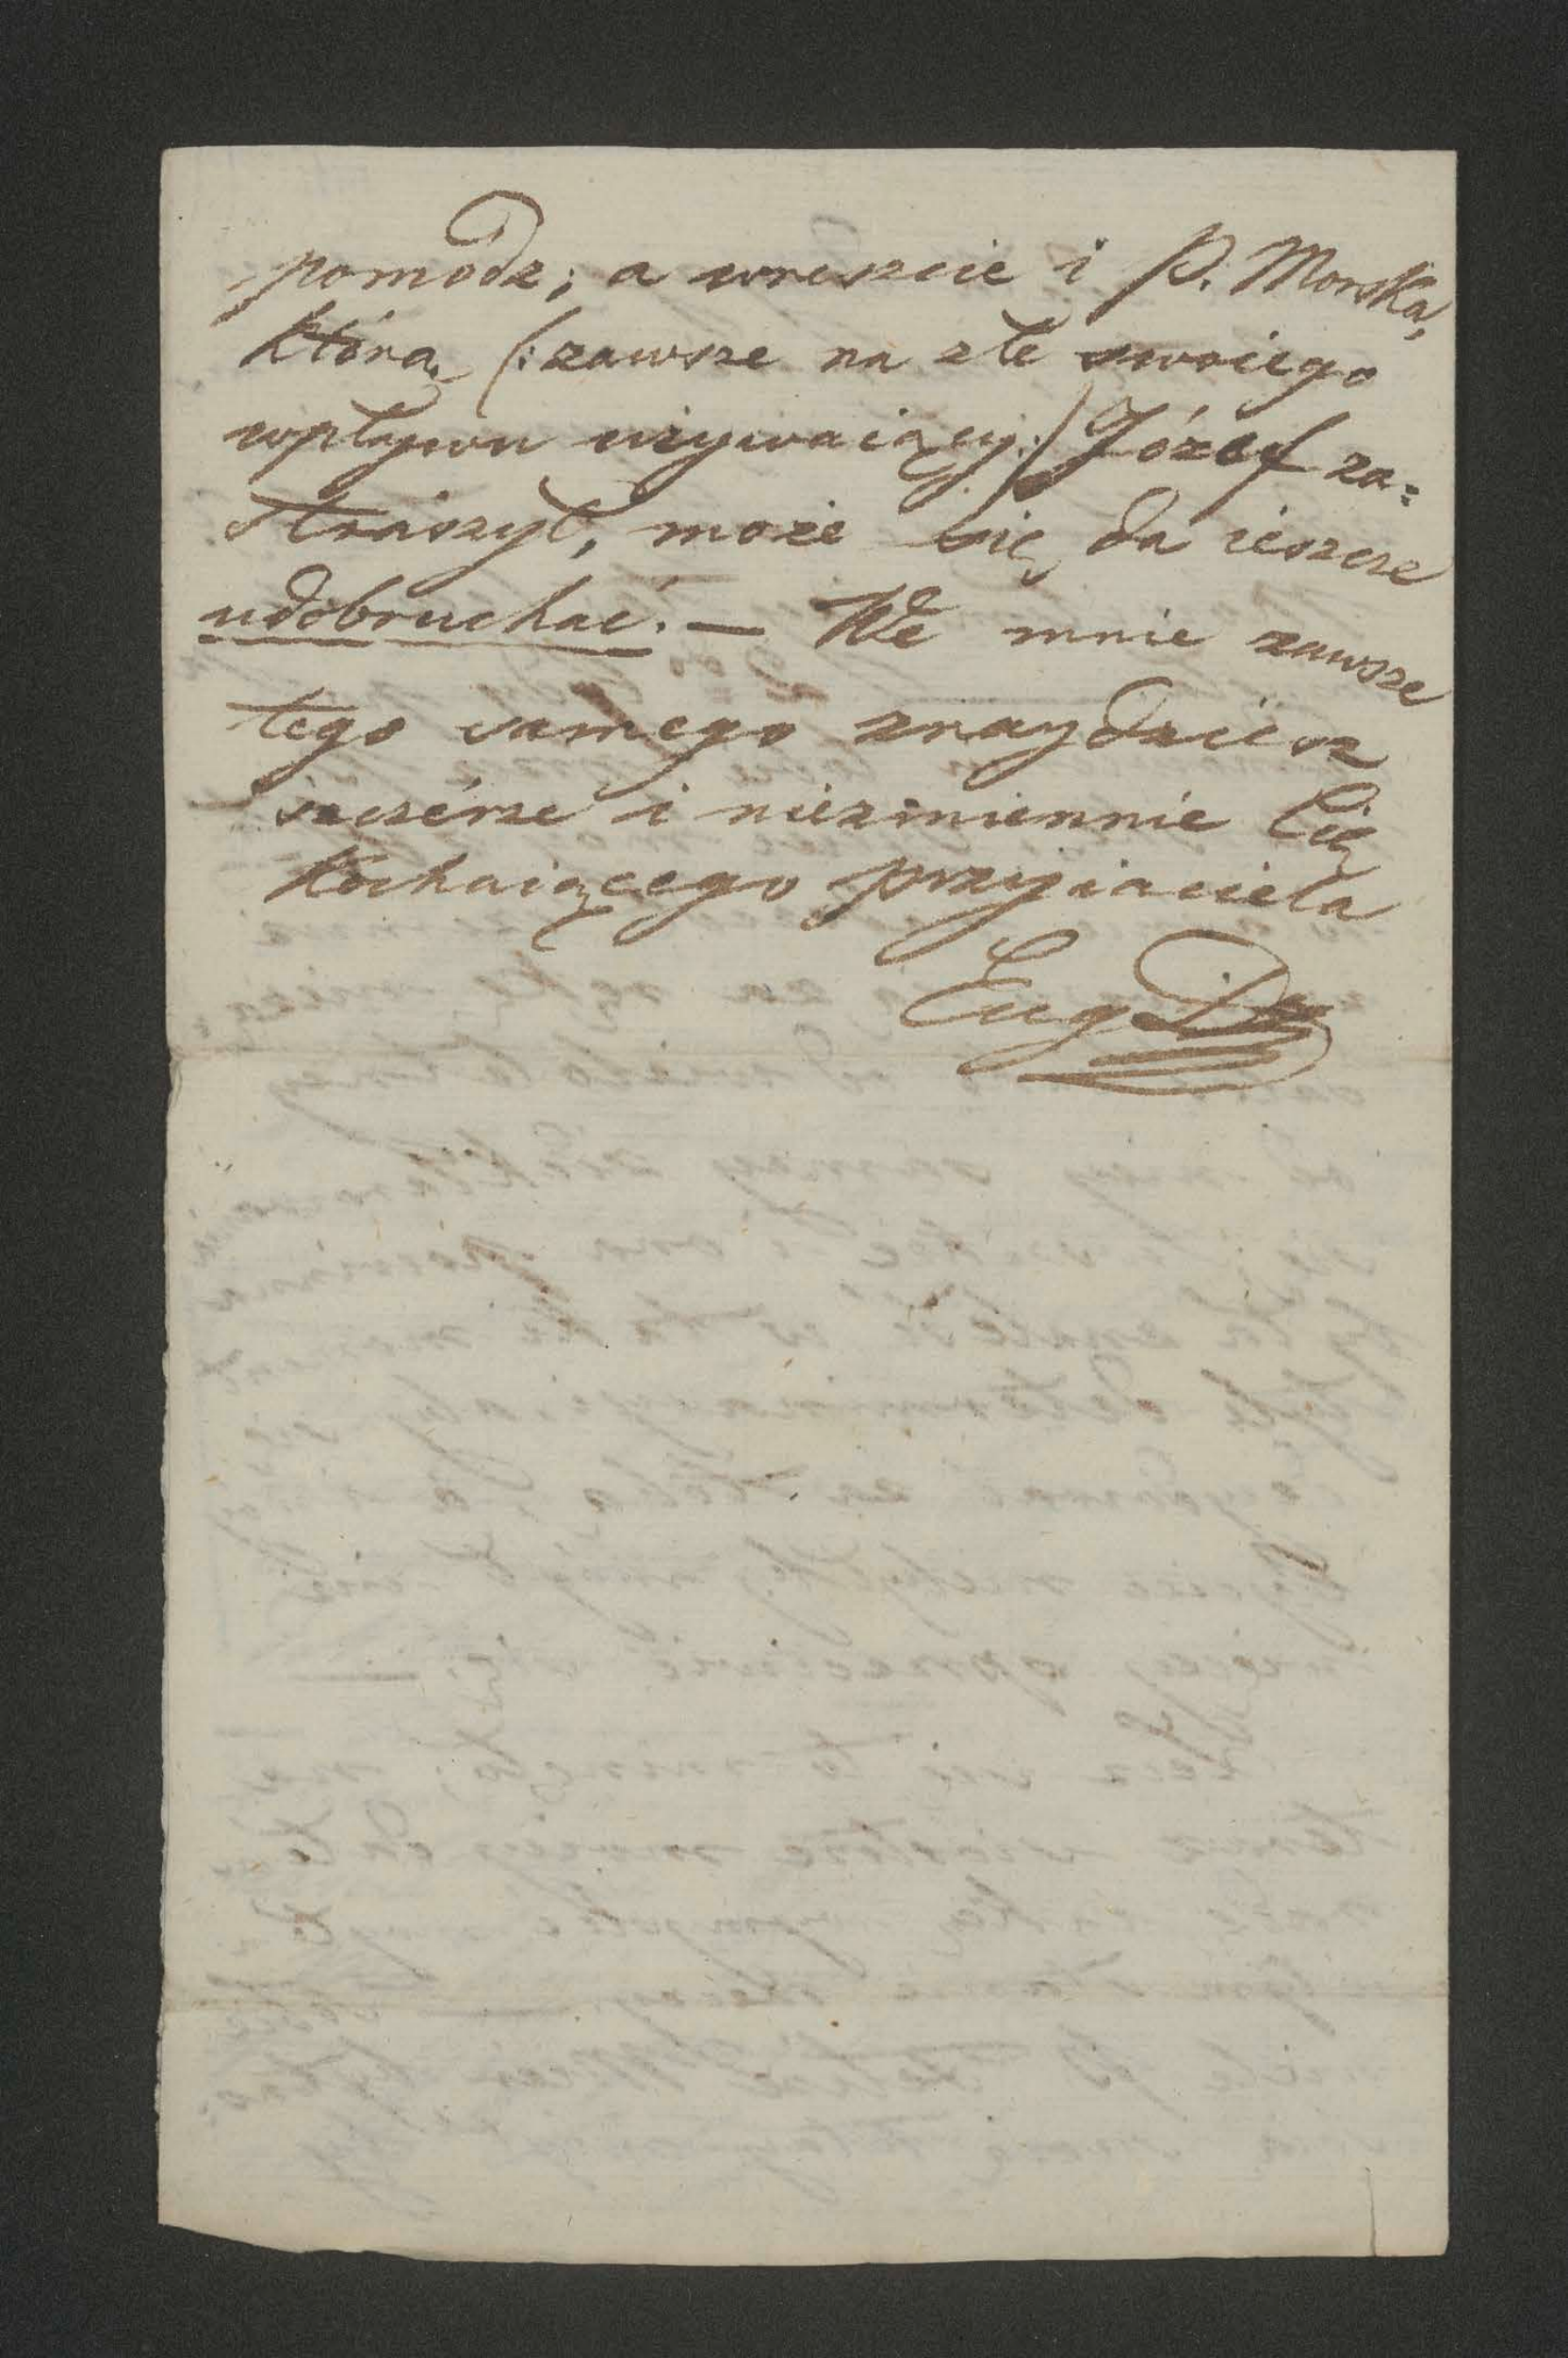 pomódz; a wreszcie i P. Morska,
którą (: zawsze na złe swoiego
wpływu używaiący :) Józef za=
straszył, może się da ieszcze
udobruchać. — We mnie zawsze
tego samego znaydziesz
szczérze i niezmiennie Cię
kochaiącego przyiaciela
Eug